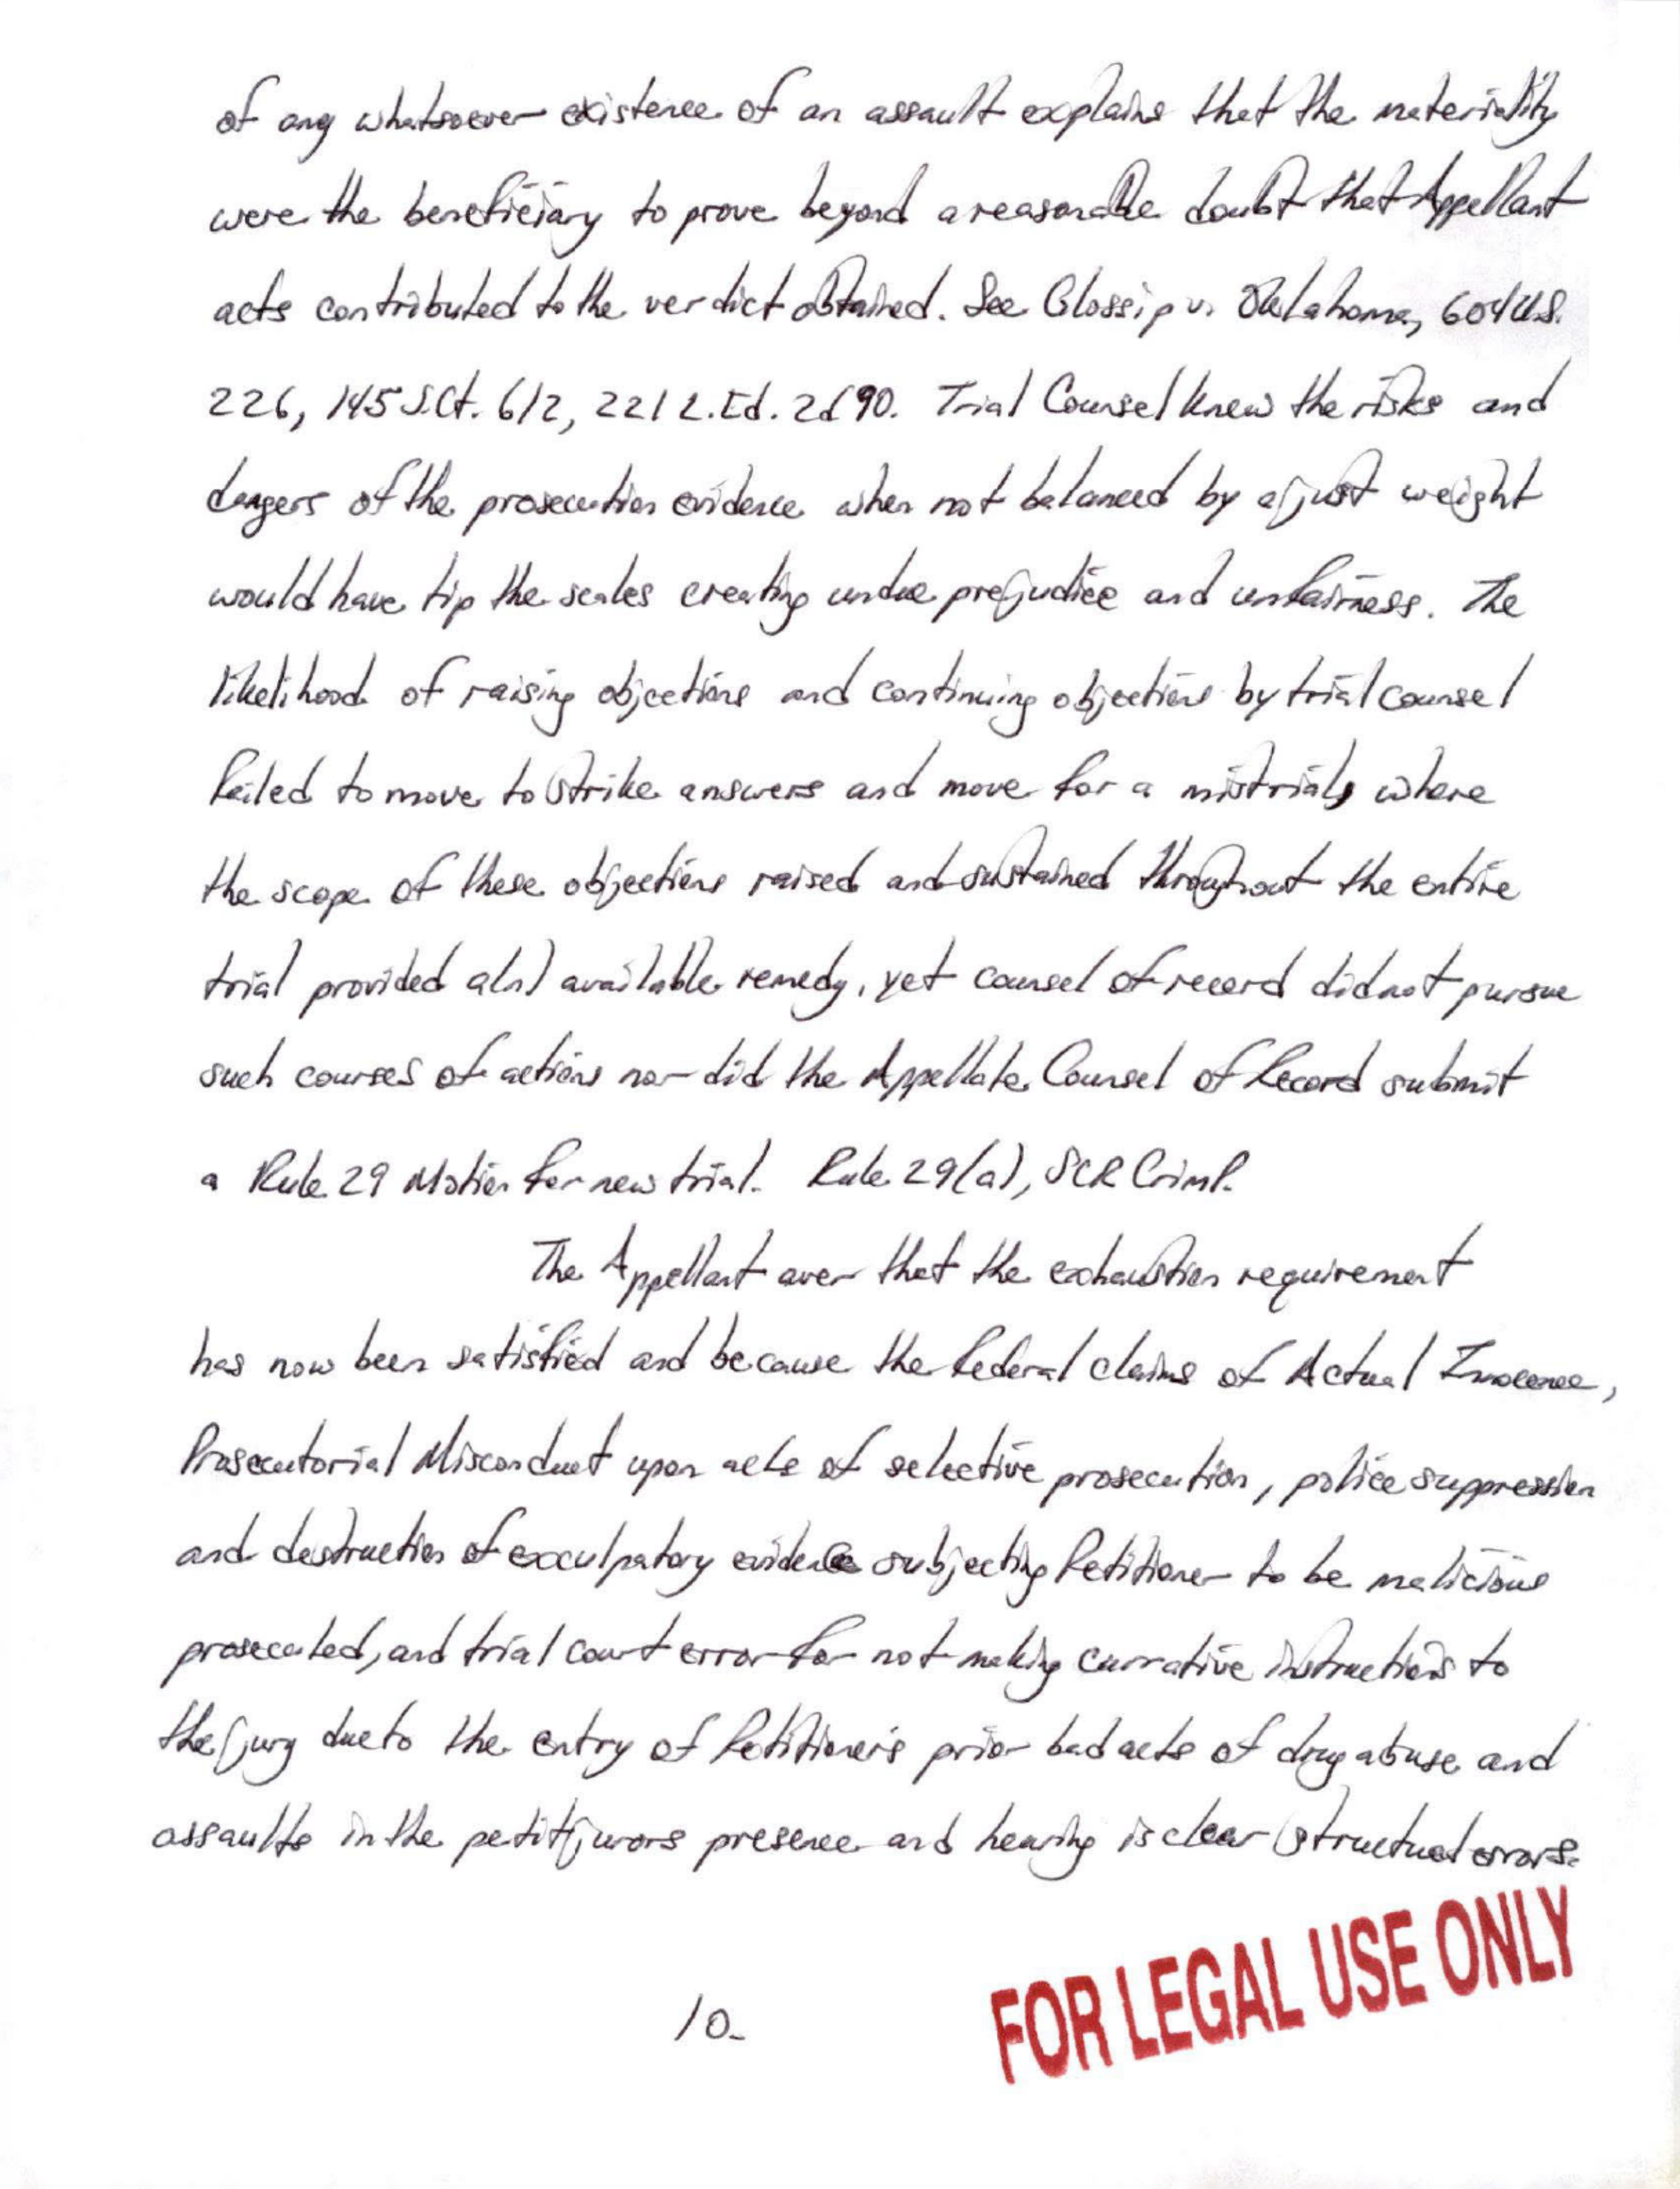 of any whatsoever existence of an assault explains that the materiality
were the beneficiary to prove beyond a reasonable doubt that Appellant
acts contributed to the verdict obtained. See Glossip v. Oklahoma, 604 U.S.
226, 145 S.Ct. 612, 221 L.Ed. 2d 90. Trial Counsel knew the risks and
dangers of the prosecution evidence when not balanced by a just weight
would have tip the scales creating undue prejudice and unfairness. The
likelihood of raising objections and continuing objections by trial counsel
failed to move to strike answers and move for a mistrial, where
the scope of these objections raised and sustained throughout the entire
trial provided a(n) available remedy, yet counsel of record did not pursue
such courses of actions nor did the Appellate Counsel of Record submit
a Rule 29 Motion for new trial. Rule 29(a), SCR CrimP.
The Appellant aver that the exhaustion requirement
has now been satisfied and because the federal claims of Actual Innocence,
Prosecutorial Misconduct upon acts of selective prosecution, police suppression
and destruction of exculpatory evidence subjecting Petitioner to be malicious
prosecuted, and trial court error for not making currative instructions to
the jury due to the entry of Petitioner's prior bad acts of drug abuse and
assaults in the petit jurors presence and hearing is clear structual errors.
10-
FOR LEGAL USE ONLY